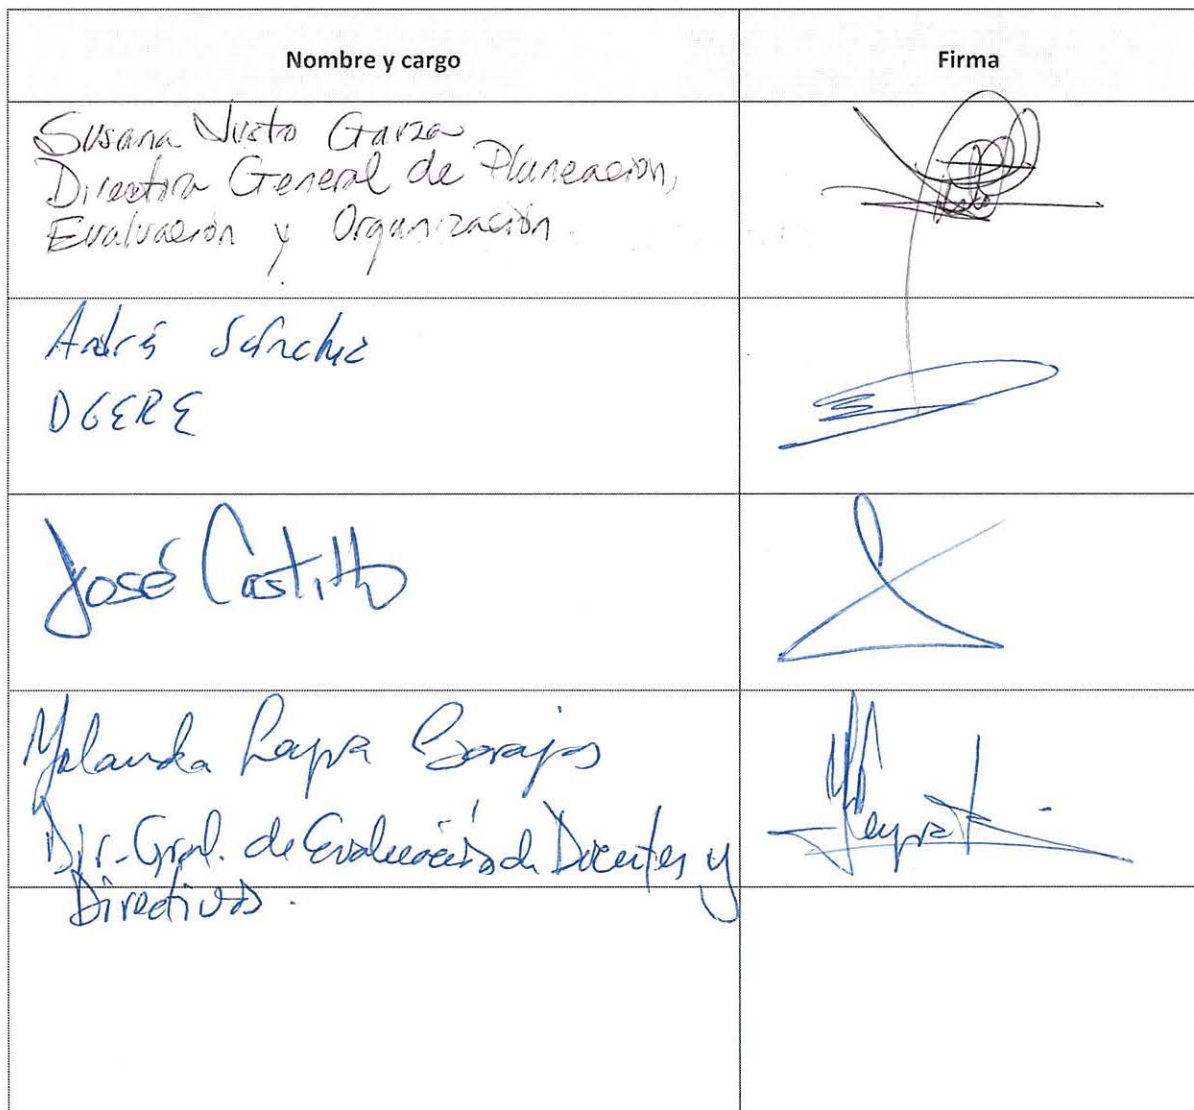 Nombre y cargo
Firma
Susana Justo Garza
Directora General de Planeación,
Evaluación y Organización.
Andrés Sánchez
DGERE
José Castillo
Yolanda Leyva Barajas
Dir. Gral. de Evaluación de Docentes y
Directivos.